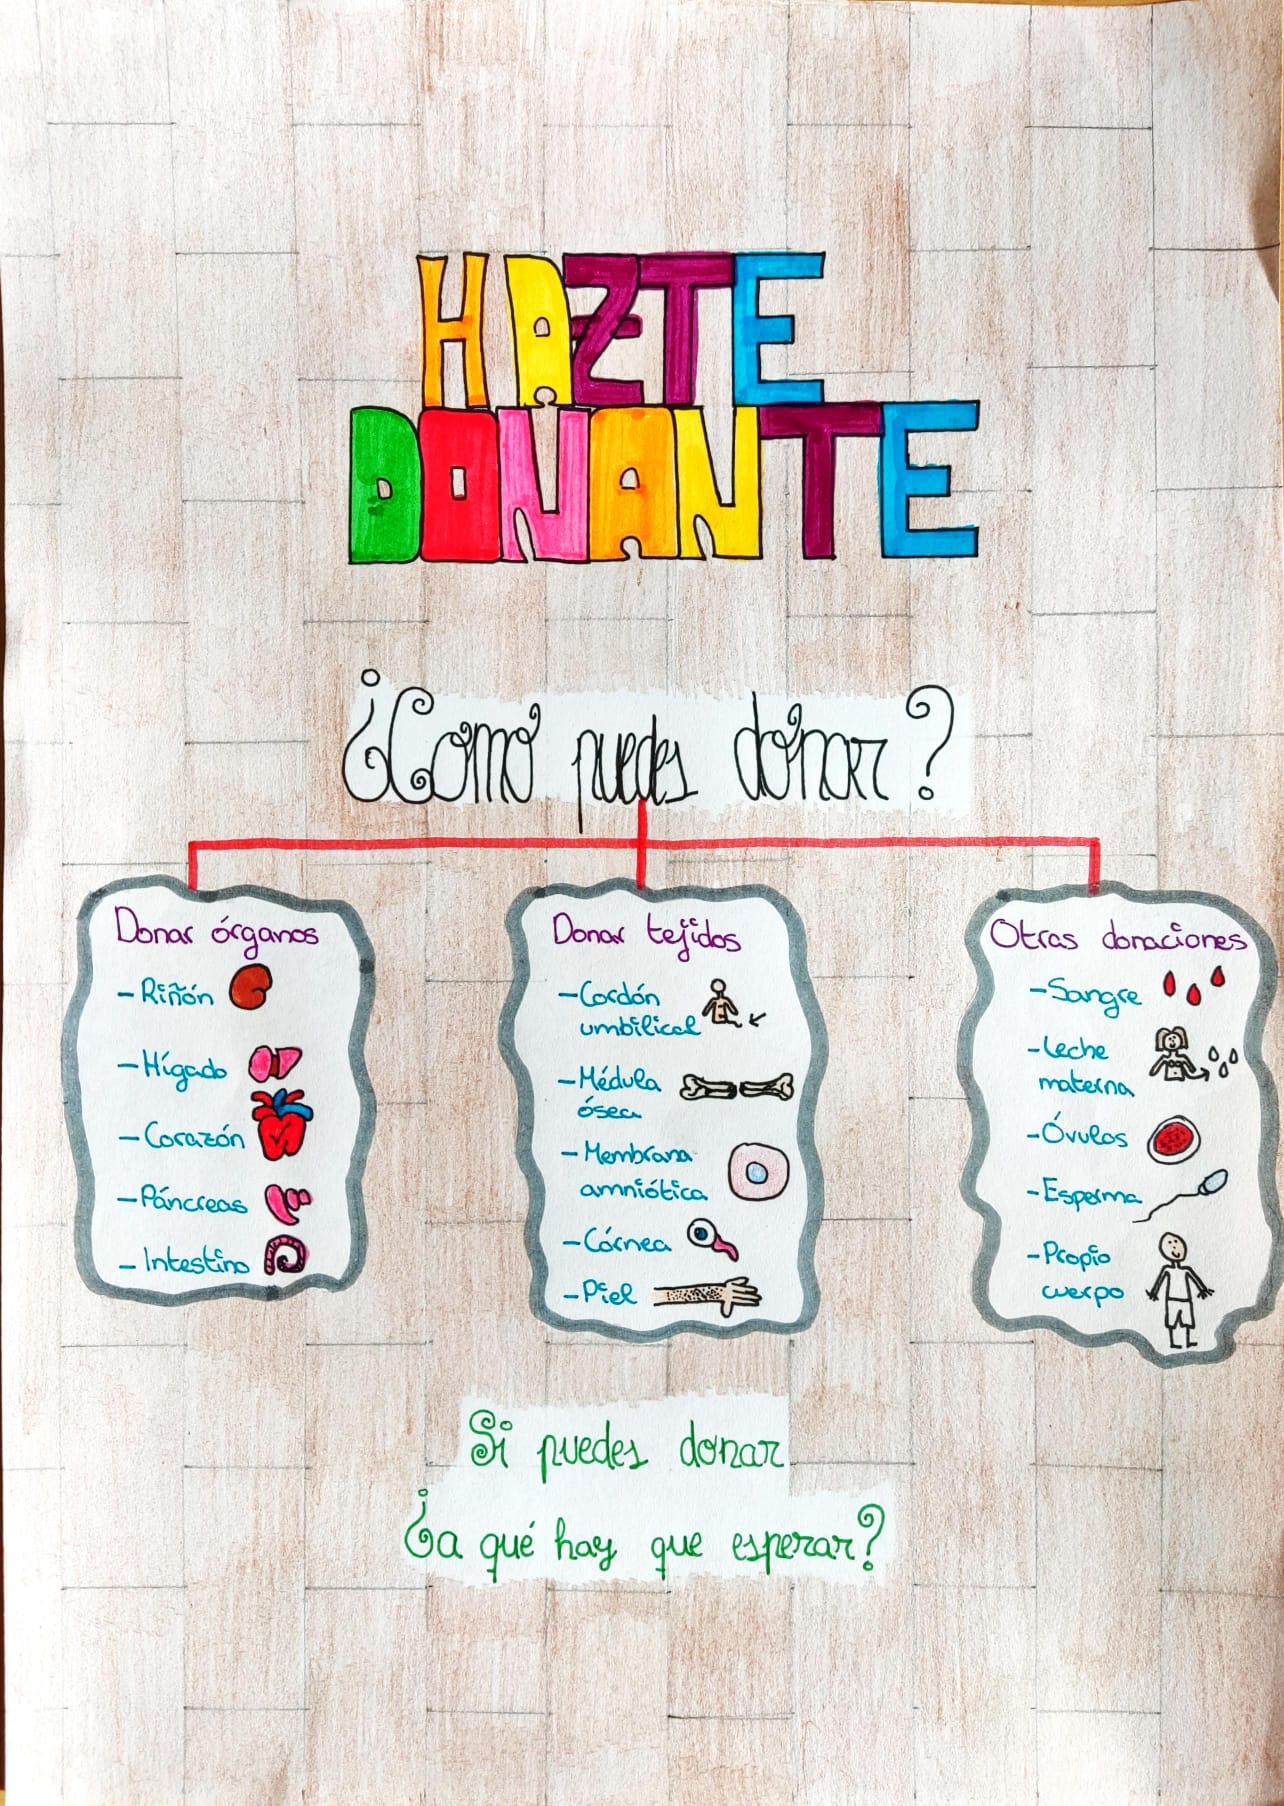 HAZTE
DONANTE
¿Como puedes donar?
Donar órganos
-Riñón
-Hígado
-Corazón
-Páncreas
-Intestino
Donar tejidos
-Cordón
umbilical
-Médula
ósea
-Membrana
amniótica
-Córnea
-Piel
Otras donaciones
-Sangre
-Leche
materna
-Óvulos
-Esperma
-Propio
cuerpo
Si puedes donar
¿a qué hay que esperar?